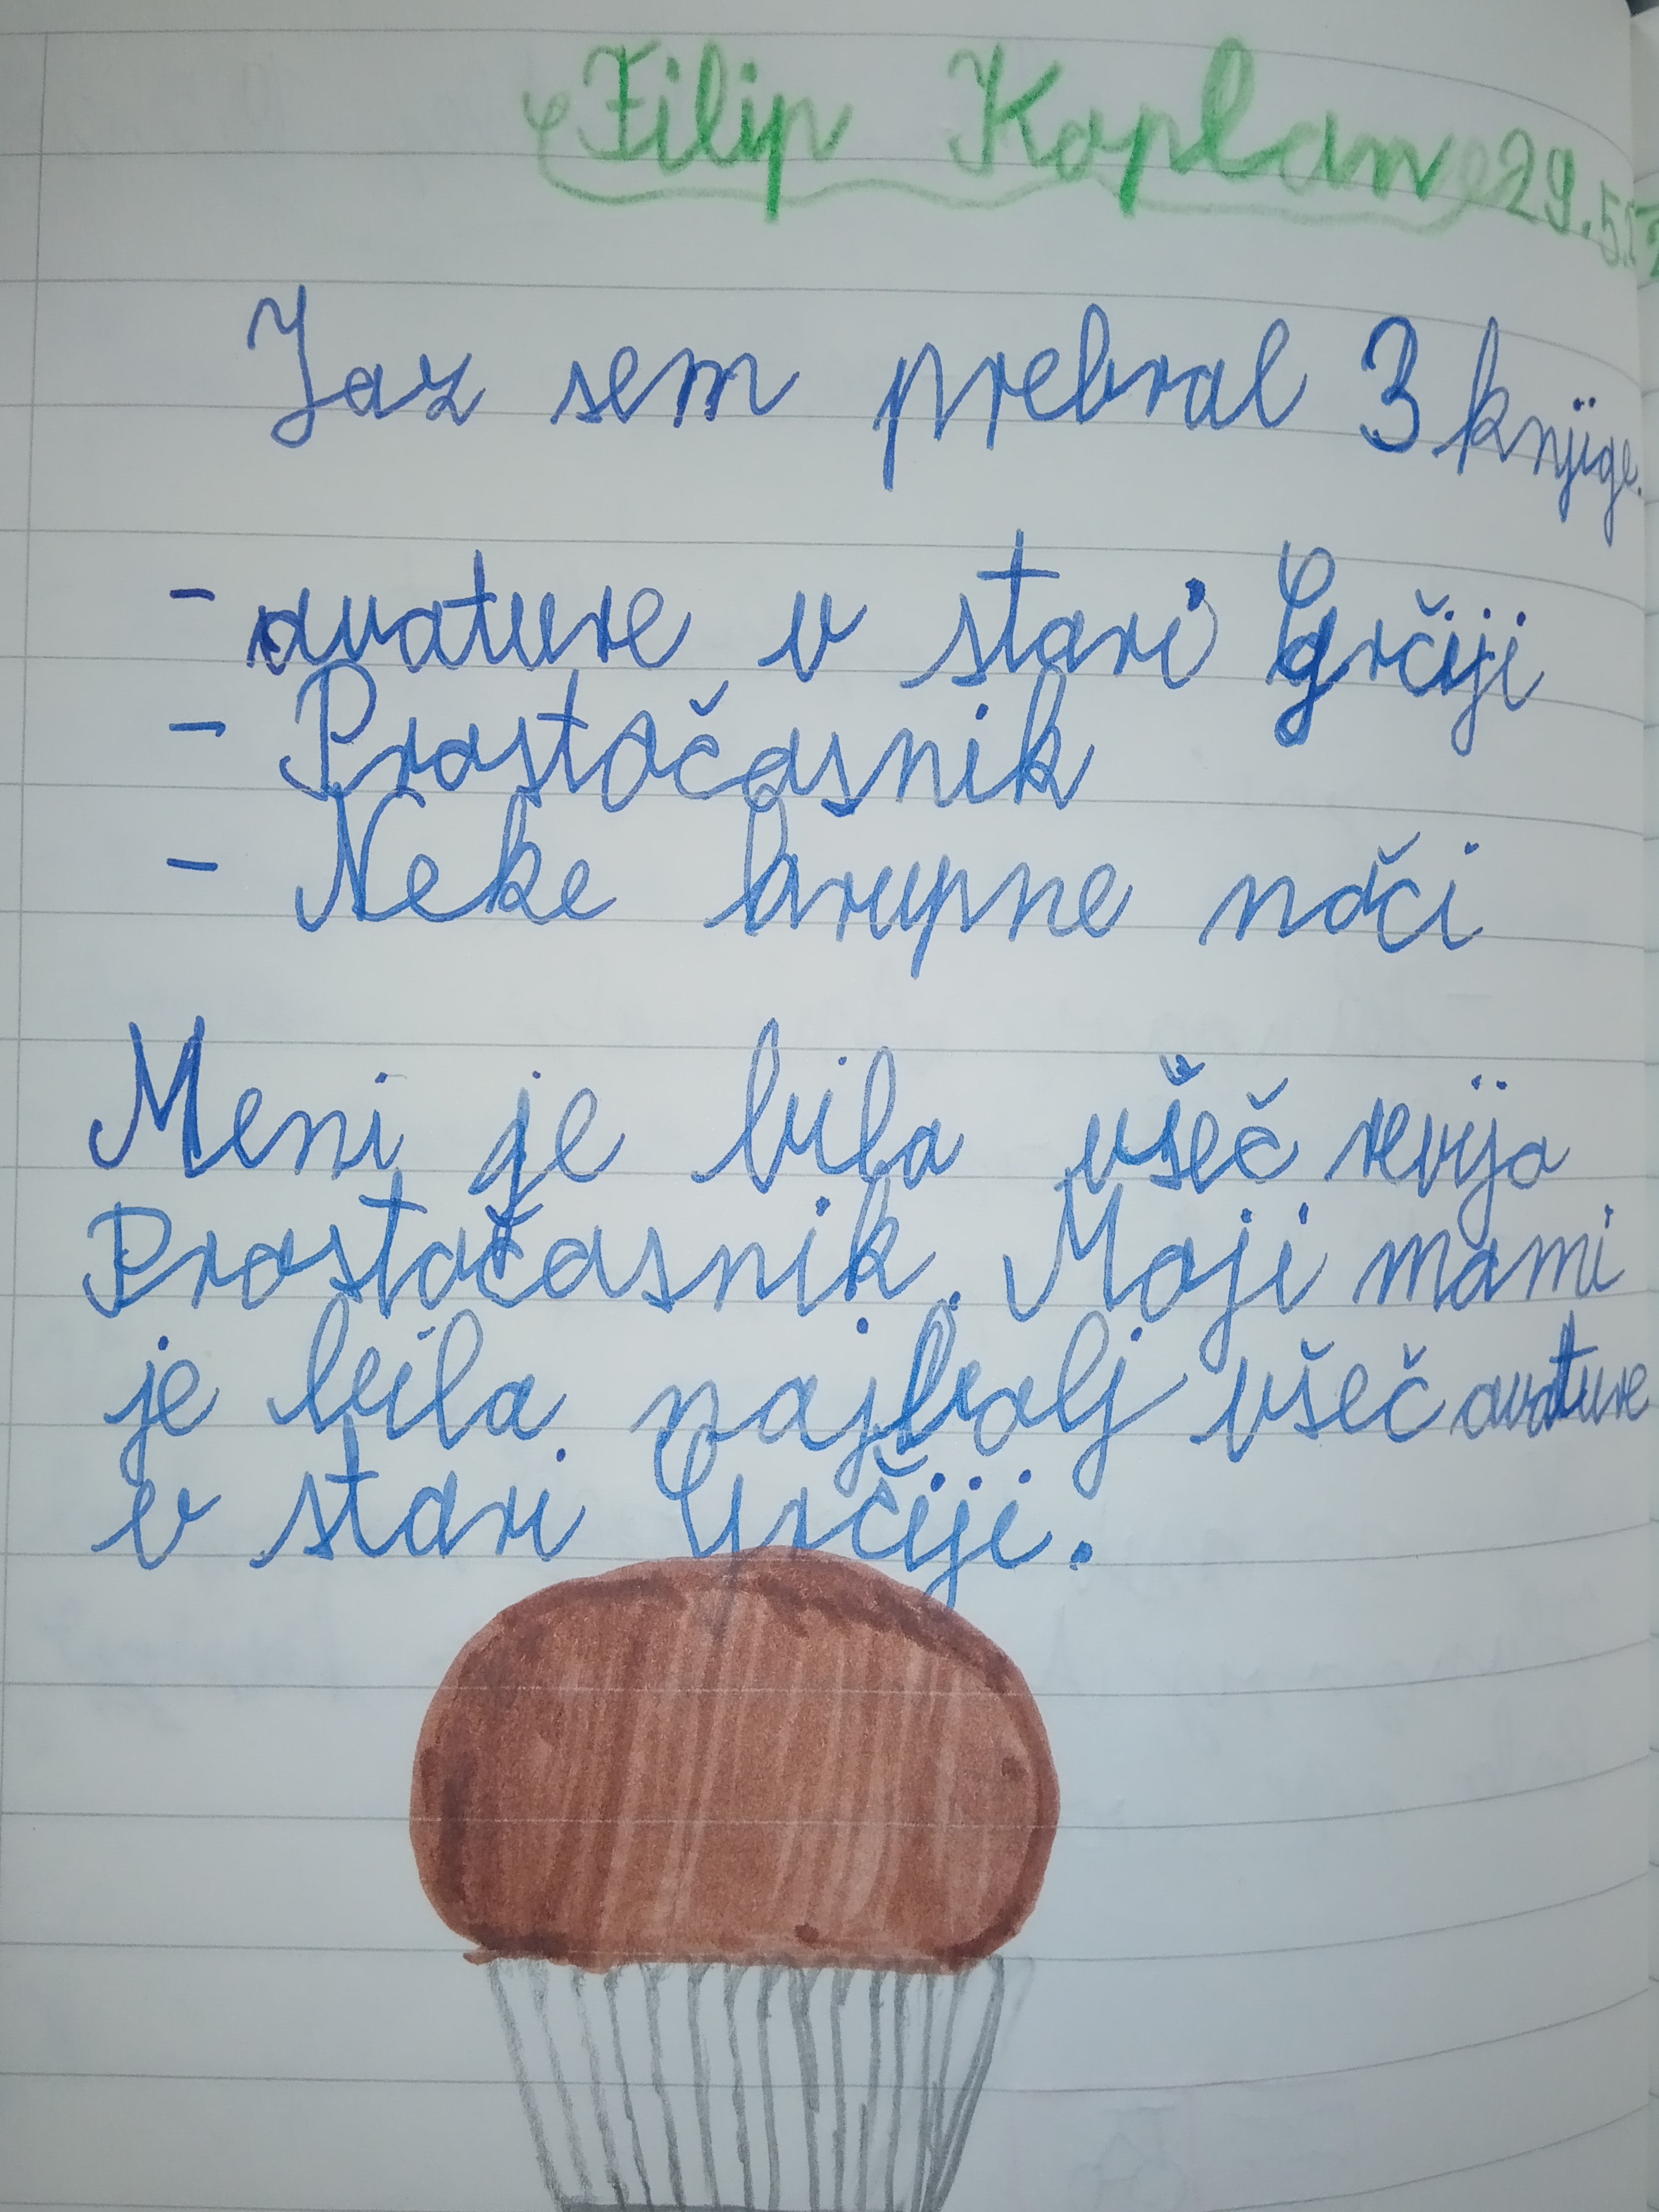 Filip Kaplan 29.5.
Jaz sem prebral 3 knjige.
- avature v stari Grčiji
- Prostočasnik
- Neke krupne noči
Meni je bila všeč revija
Prostočasnik. Moji mami
je bila najbolj všeč avature
v stari Grčiji.